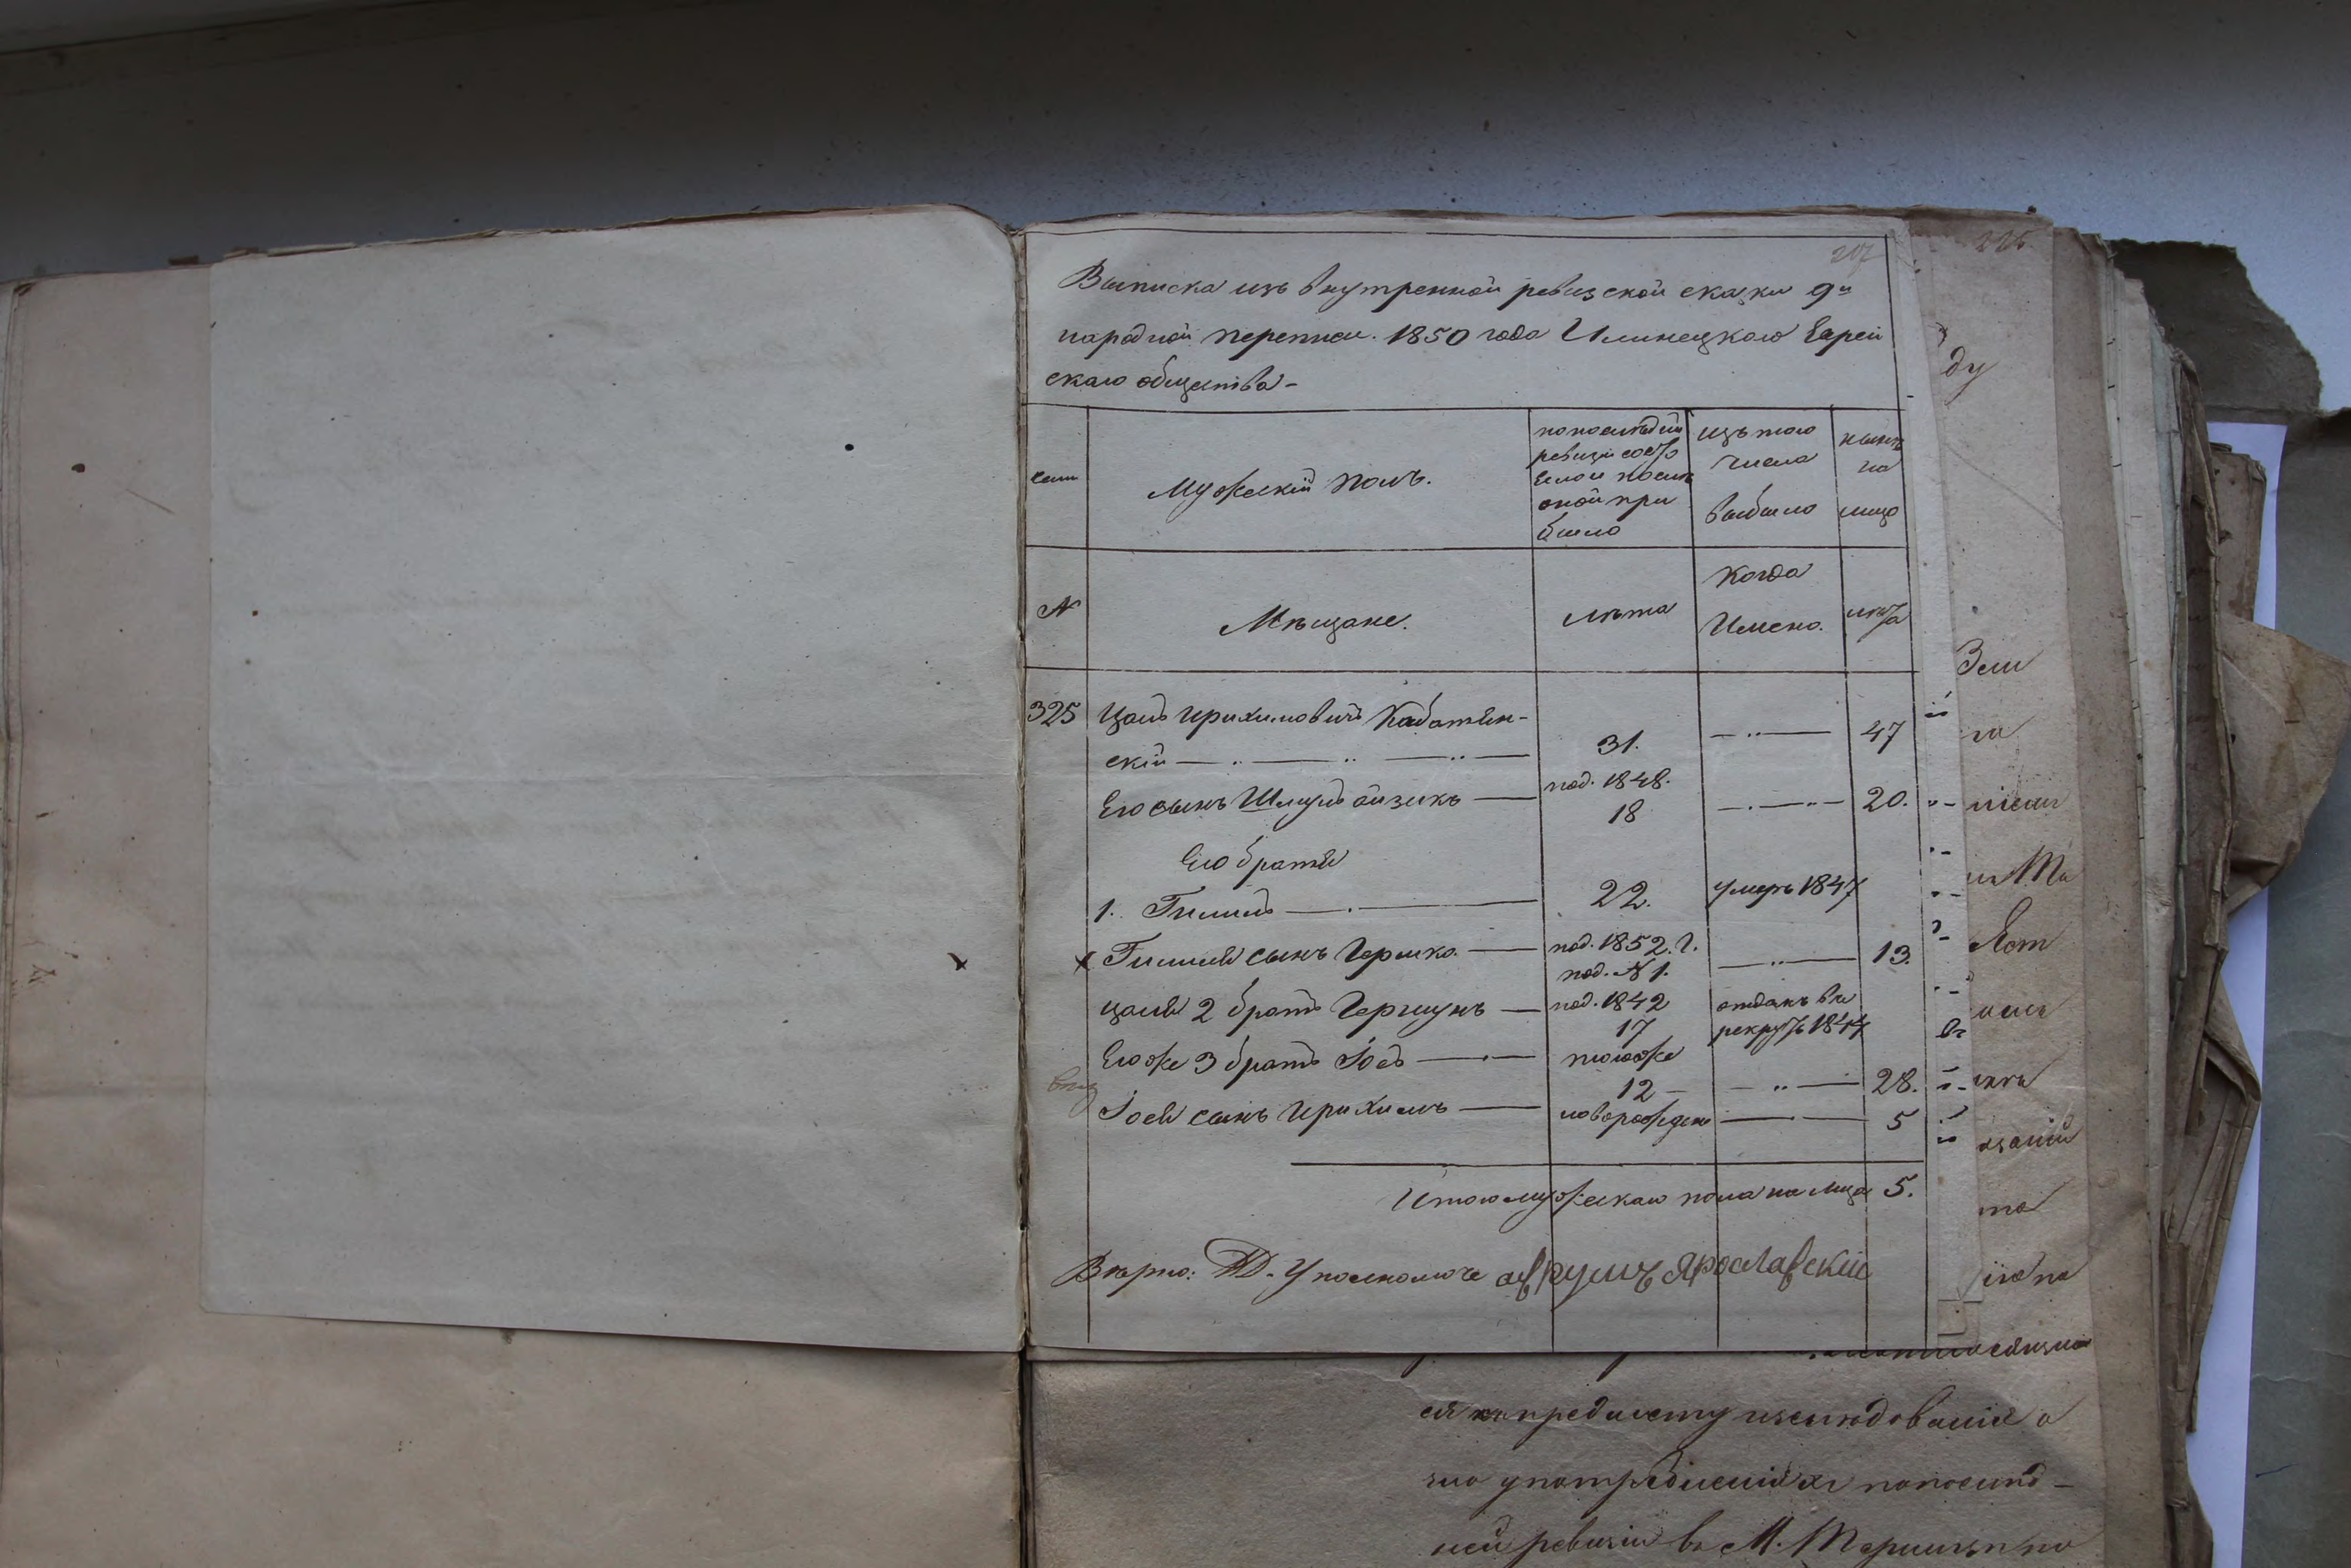 207
Выписка изъ внутренной ревизской сказки 9й
народной переписи. 1850 года Илинецкаго Еврей
скаго общества -
семи
Мужескій полъ.
по последній
ревизіи состо
яло и посль
оной при
было
изъ того
числа
выбыло
нынѣ
на
лицо
№
Мѣщане.
лѣта
Когда
Имено.
лѣта
325 Цаль Ирихимовичъ Кабатян-
скій 31. 47
Его сынъ Шмуль Айзикъ под. 1848. 18 20.
Его братья
1. Гиммль 22. умеръ 1847
х Гиммля сынъ Гершко под. 1852. г. под. № 1. 13.
Цаля 2 братъ Гершунъ под. 1842 17 отданъ въ рекруты 1844
Его же 3 братъ Іось тогоже 12 - 28.
Іося сынъ Ирихимъ новорожден 5
Итого мужескаго пола на лицо 5.
Вѣрно: Уполномоче аврумъ Ярославскій
226
ду
Зем
на
ся предмету изслѣдованія о
употребленія
ней ревизіи въ М.